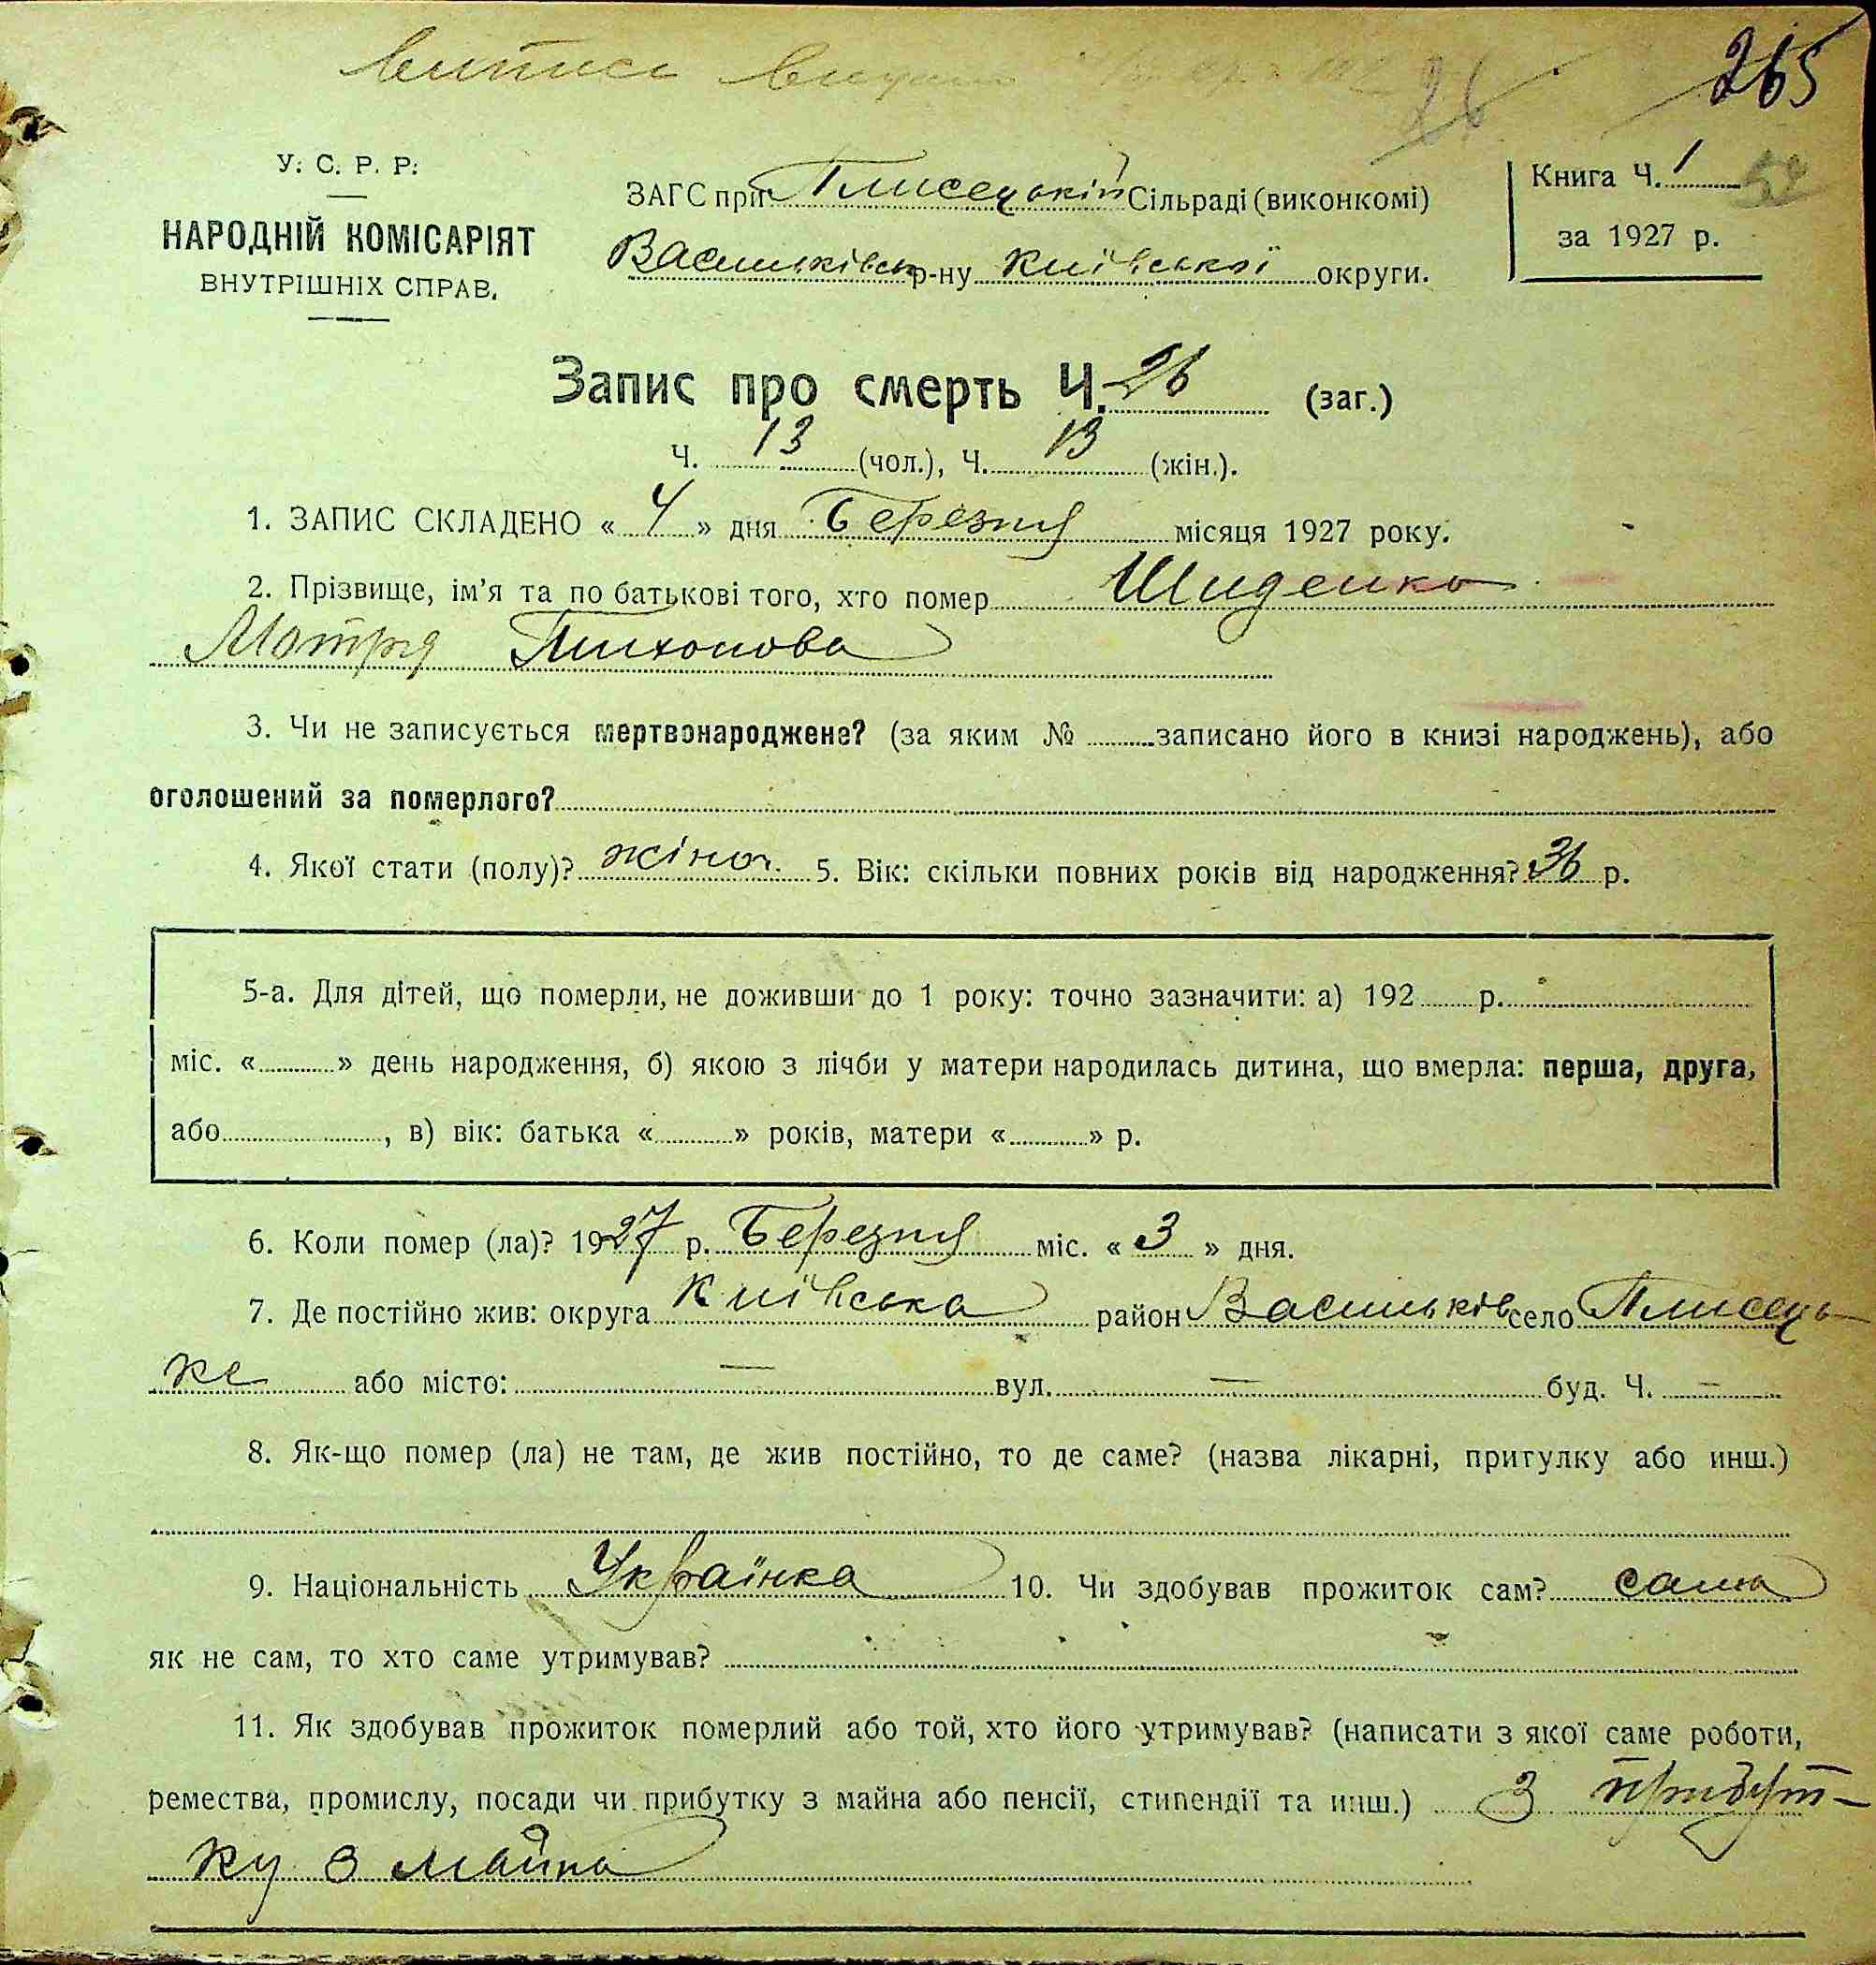 випись видана
26 265
У. С. Р. Р.
НАРОДНІЙ КОМІСАРІЯТ
ВНУТРІШНІХ СПРАВ.
ЗАГС при Плисецькій Сільраді (виконкомі)
Васильківськ р-ну Київської округи.
Книга Ч. 1 52
за 1927 р.
Запис про смерть Ч. 26 (заг.)
Ч. 13 (чол.), Ч. 13 (жін.).
1. ЗАПИС СКЛАДЕНО « 4 » дня Березня місяця 1927 року.
2. Прізвище, ім'я та по батькові того, хто помер Шиденко
Мотря Тихонова
3. Чи не записується мертвонароджене? (за яким № записано його в книзі народжень), або
оголошений за померлого?
4. Якої стати (полу)? жіноч. 5. Вік: скільки повних років від народження? 36 р.
5-а. Для дітей, що померли, не доживши до 1 року: точно зазначити: а) 192 р.
міс. « » день народження, б) якою з лічби у матери народилась дитина, що вмерла: перша, друга,
або , в) вік: батька « » років, матери « » р.
6. Коли помер (ла)? 1927 р. Березня міс. « 3 » дня.
7. Де постійно жив: округа Київська район Васильків село Плисець-
ке або місто: — вул. — буд. Ч. —
8. Як-що помер (ла) не там, де жив постійно, то де саме? (назва лікарні, притулку або инш.)
9. Національність Українка 10. Чи здобував прожиток сам? сама
як не сам, то хто саме утримував?
11. Як здобував прожиток померлий або той, хто його утримував? (написати з якої саме роботи,
ремества, промислу, посади чи прибутку з майна або пенсії, стипендії та инш.) З прибут-
ку з майна